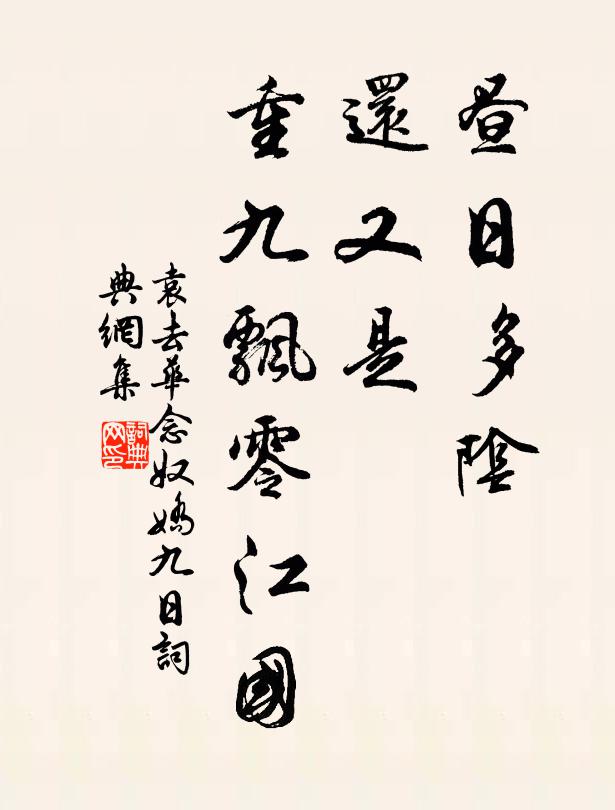 昼日多陰
還又是
重九飄零江國
袁去華念奴嬌九日詞
典網集
詞典
网印